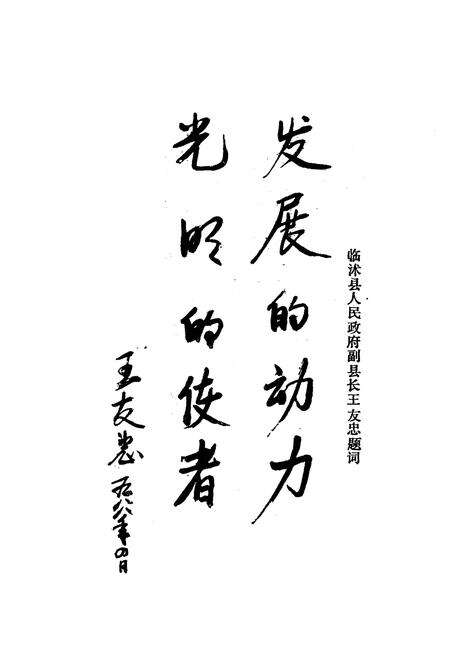 临沭县人民政府副县长王友忠题词
发展的动力
光明的使者
王友忠 一九八八年四月